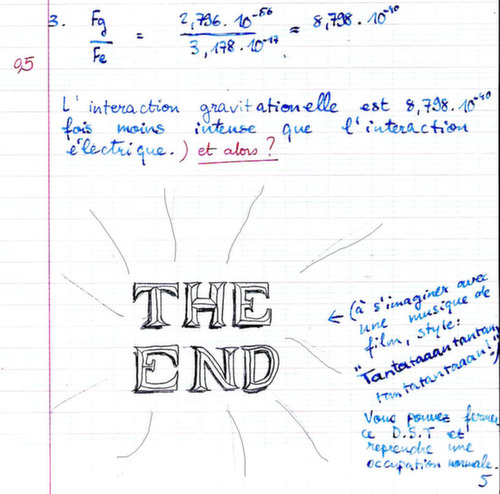 3. Fg / Fe = 2,796 . 10⁻⁵⁶ / 3,178 . 10⁻¹⁷ = 8,798 . 10⁻⁴⁰
0,5
L'interaction gravitationelle est 8,798.10⁻⁴⁰
fois moins intense que l'interaction
électrique.) et alors ?
THE
END
← (à s'imaginer avec
une musique de
film, style:
"Tantataaantantan
tantatantaaan!")
Vous pouvez fermer
ce D.S.T et
reprendre une
occupation normale.
5